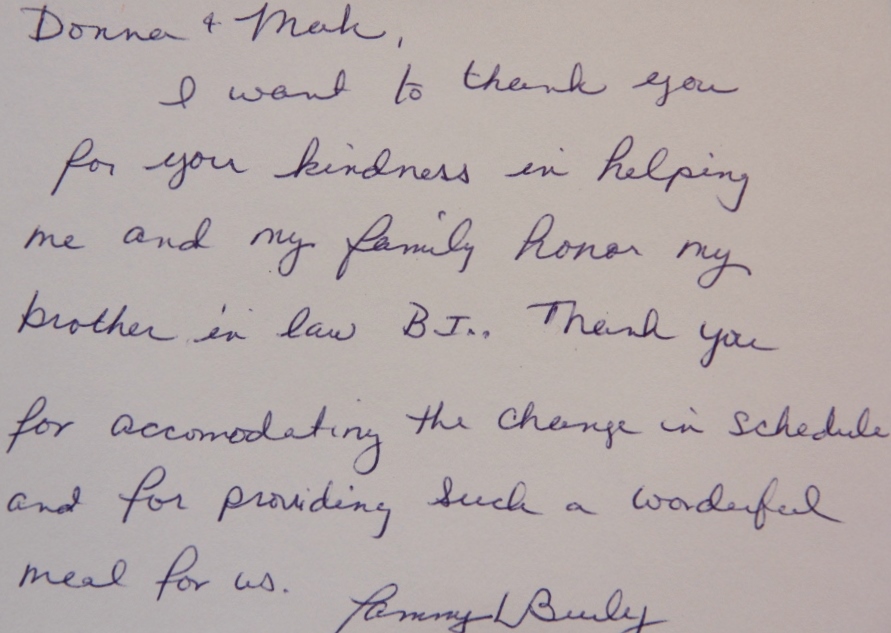 Donna & Mark,
I want to thank you
for your kindness in helping
me and my family honor my
brother in law B.J.. Thank you
for accomodating the change in schedule
and for providing such a wonderful
meal for us.
Tammy L